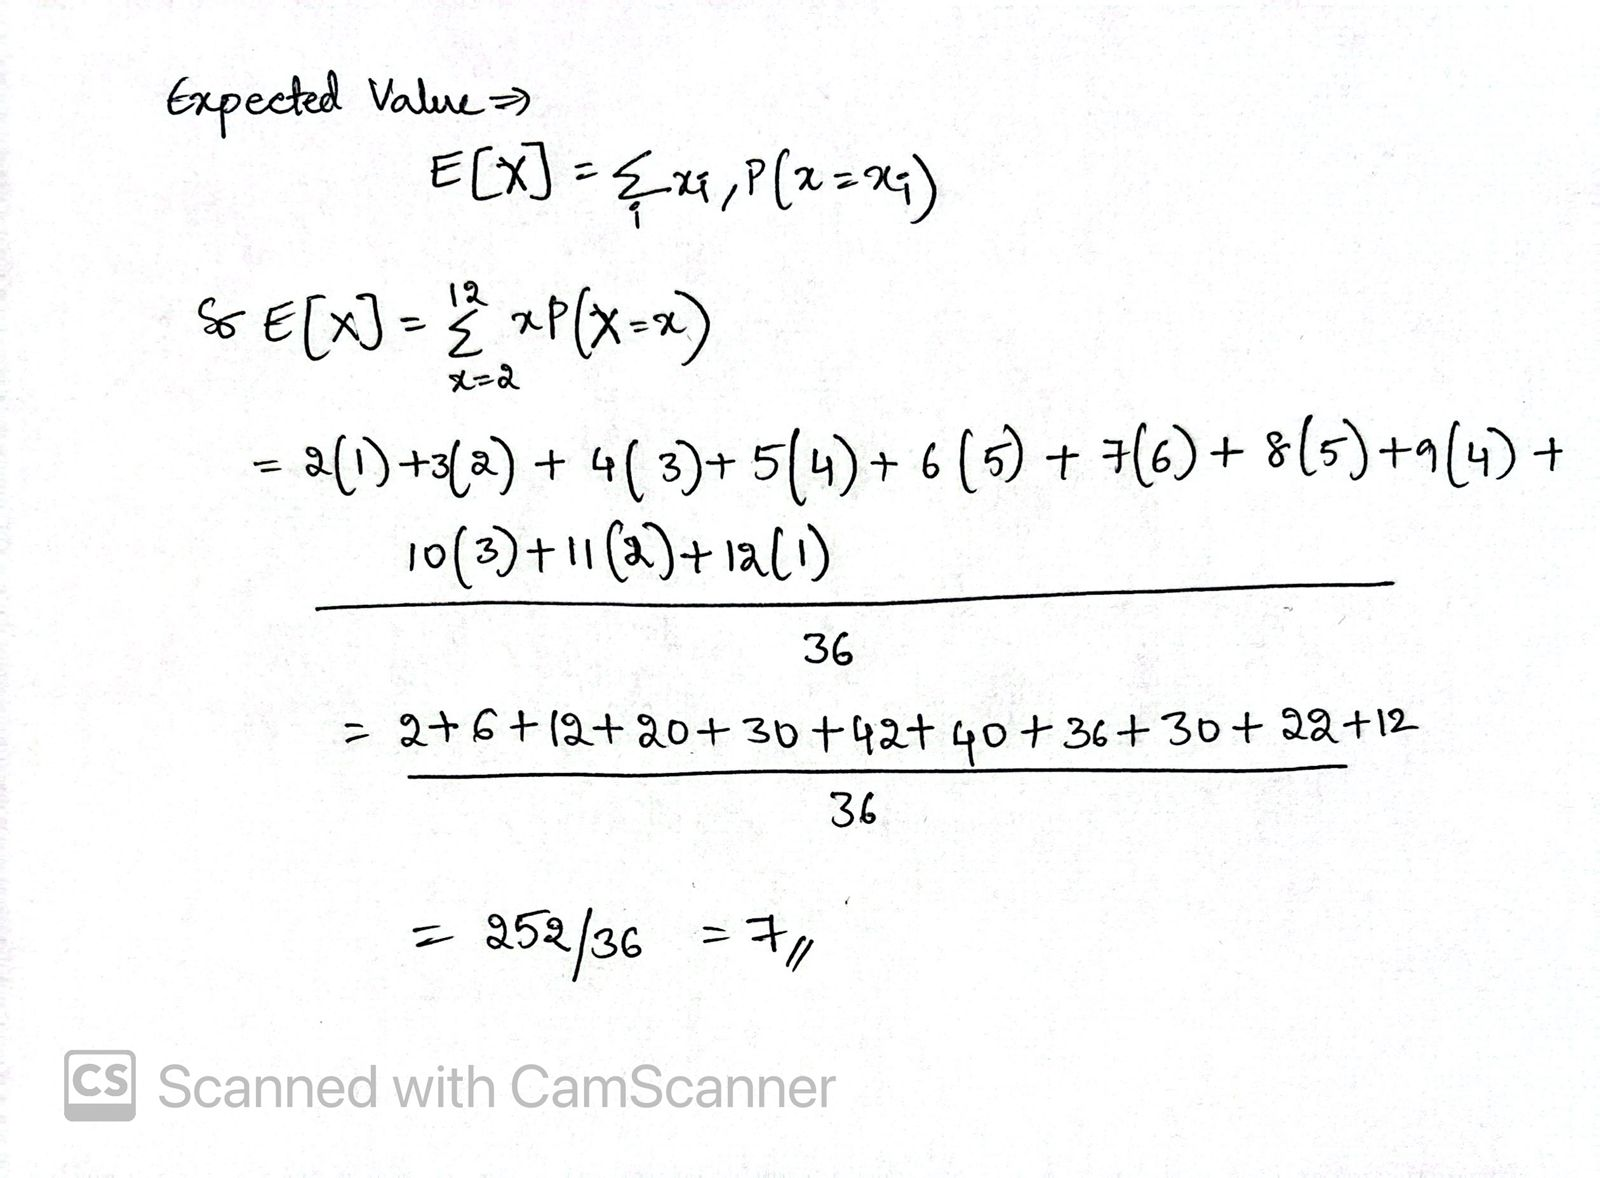 Expected Value ⇒
E[X] = Σ xi , P(x = xi)
i
So E[X] = Σ xP(X=x)
12
x=2
= 2(1)+3(2) + 4(3)+ 5(4)+ 6(5) + 7(6)+ 8(5)+9(4) +
10(3)+11(2)+12(1)
36
= 2+6+12+20+30+42+40+36+30+22+12
36
= 252/36 = 7//
CS Scanned with CamScanner